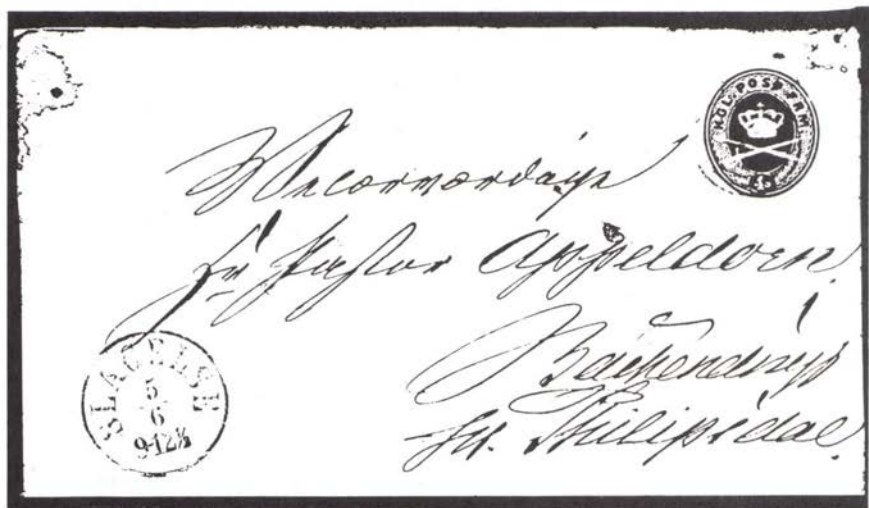 KGL. POST FRM.
4 S
Velærværdige
Hr Pastor Appeldorn
pr. Philipsdal.
SLAGELSE
5
6
9-12½